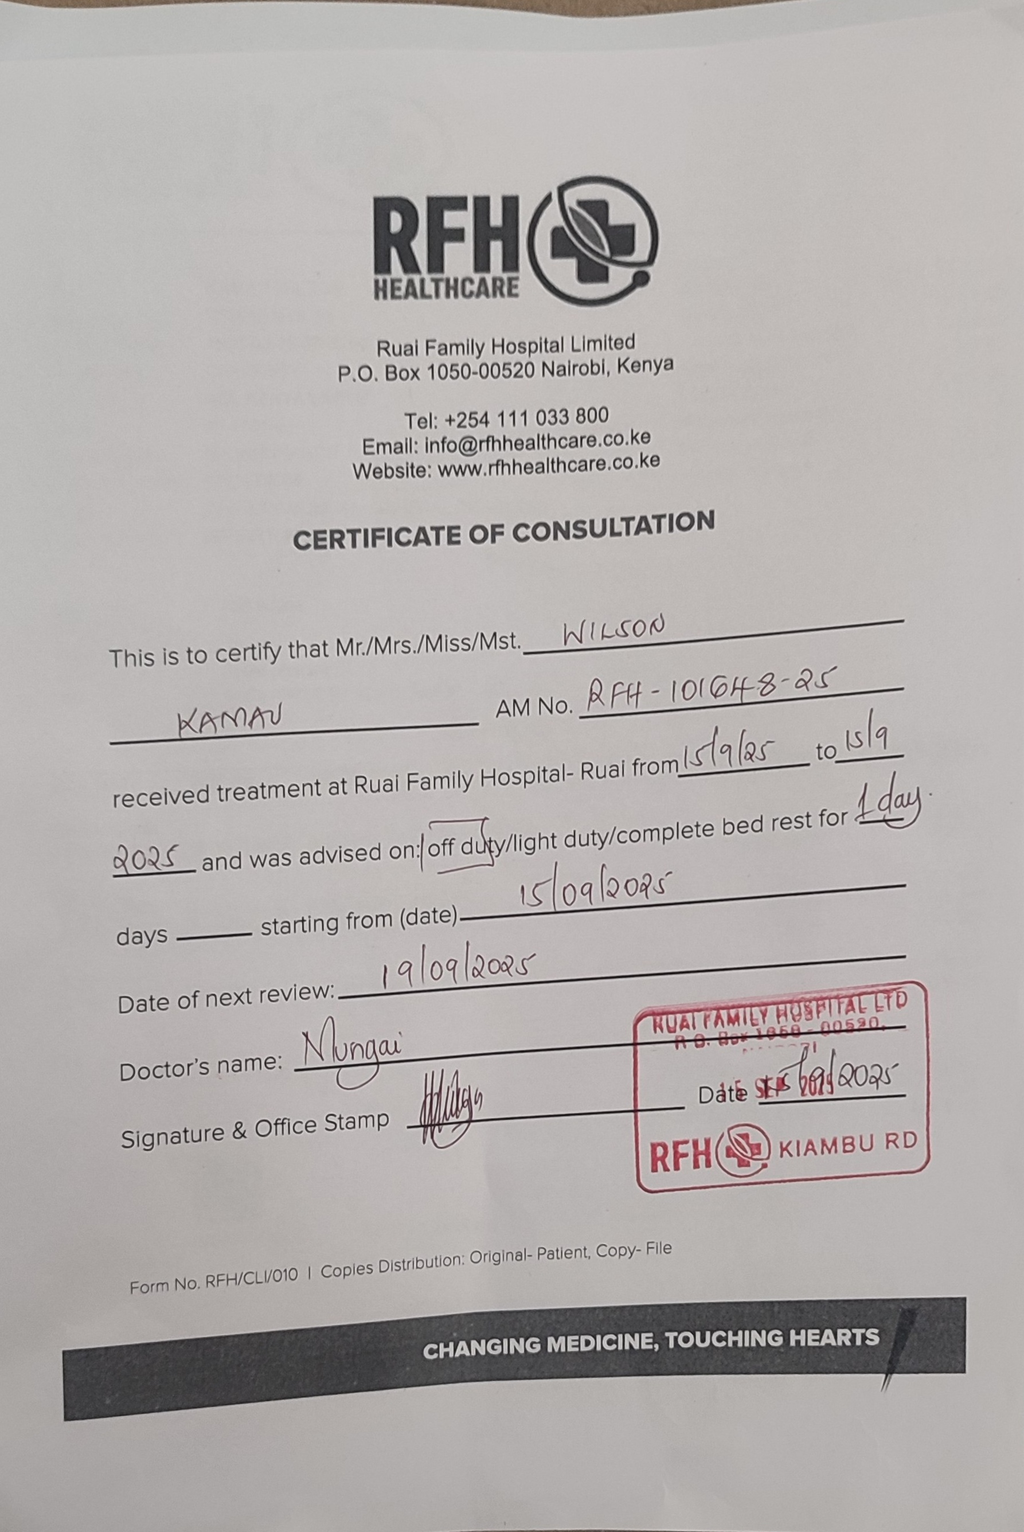 RFH
HEALTHCARE
Ruai Family Hospital Limited
P.O. Box 1050-00520 Nairobi, Kenya
Tel: +254 111 033 800
Email: info@rfhhealthcare.co.ke
Website: www.rfhhealthcare.co.ke
CERTIFICATE OF CONSULTATION
This is to certify that Mr./Mrs./Miss/Mst. WILSON
KAMAU AM No. RFH-101648-25
received treatment at Ruai Family Hospital- Ruai from 15/9/25 to 15/9
2025 and was advised on: off duty/light duty/complete bed rest for 1 day.
days ____ starting from (date) 15/09/2025
Date of next review: 19/09/2025
Doctor's name: Mungai
RUAI FAMILY HOSPITAL LTD
P.O. Box 1050 - 00520,
Signature & Office Stamp Date 15/9/2025
15 SEP 2025
RFH KIAMBU RD
Form No. RFH/CLI/010 | Copies Distribution: Original- Patient, Copy- File
CHANGING MEDICINE, TOUCHING HEARTS